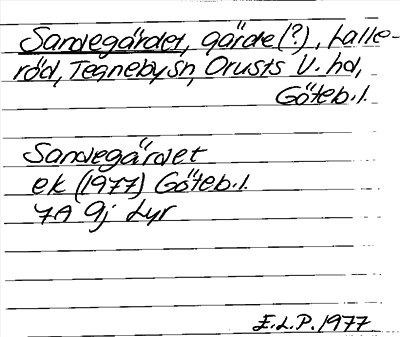 Sandegärdet, gärde (?), Halle-
röd, Tegneby sn, Orusts V. hd,
Göteb. l.
Sandegärdet
ek (1977) Göteb. l.
7A 9j Lyr
E.L.P. 1977